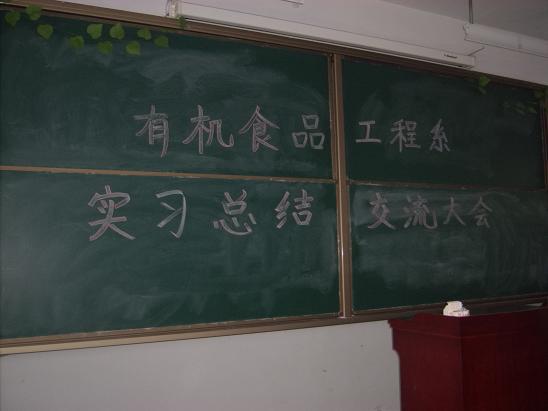 有机食品工程系
实习总结交流大会